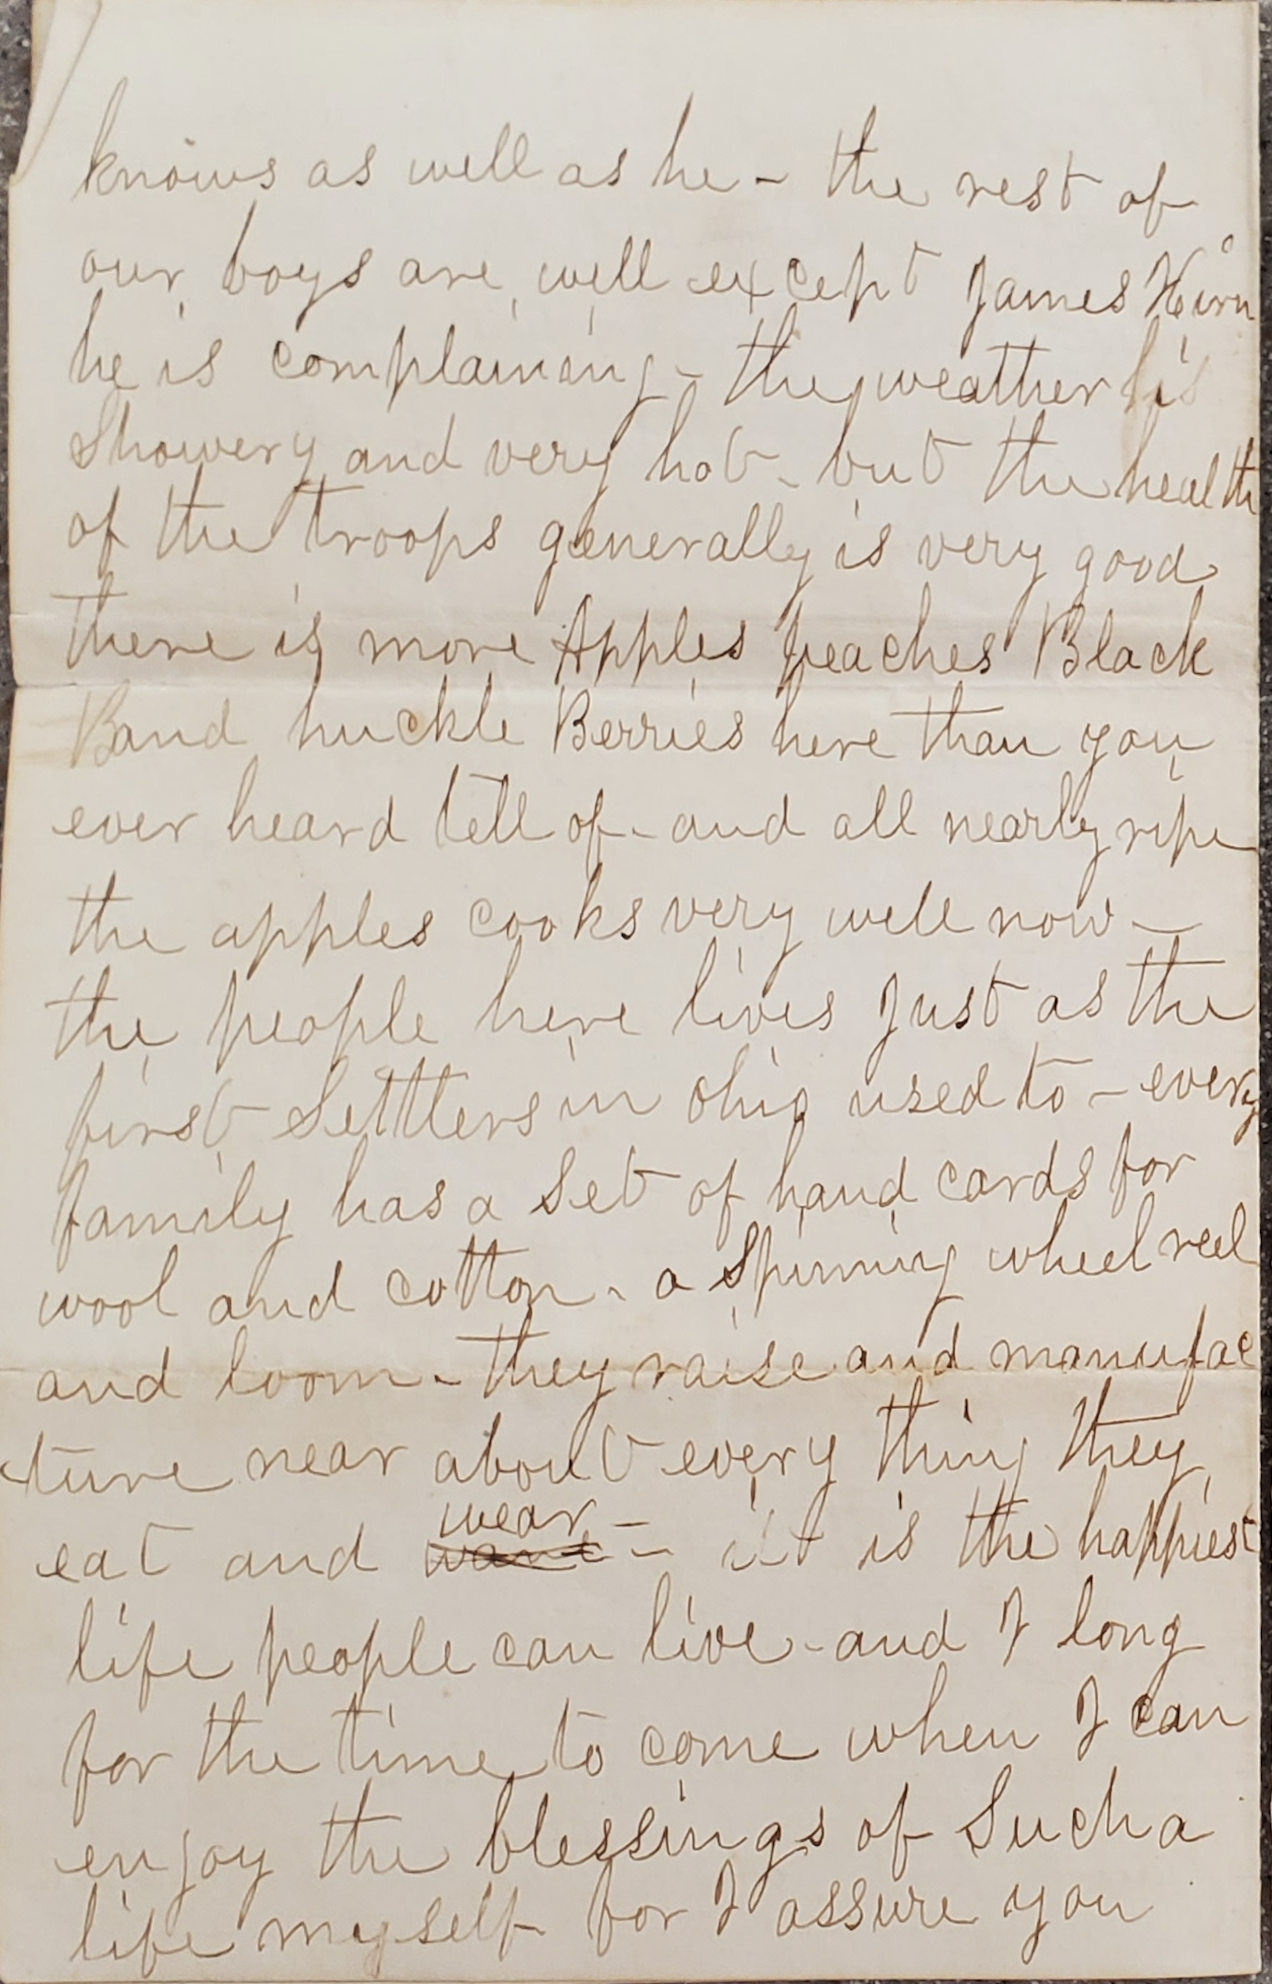 knows as well as he - the rest of
our boys are well except James Kirn
he is complaining - the weather is
Showery and very hot - but the health
of the troops generally is very good
there is more Apples peaches Black
Band huckle Berries here than you
ever heard tell of - and all nearly ripe
the apples cooks very well now -
the people here lives Just as the
first Settlers in Ohio used to - every
family has a Set of hand cards for
wool and cotton - a Spinning wheel reel
and loom - they raise and manufac
ture near about every thing they
eat and wear - it is the happiest
life people can live - and I long
for the time to come when I can
enjoy the blessings of Such a
life myself for I assure you